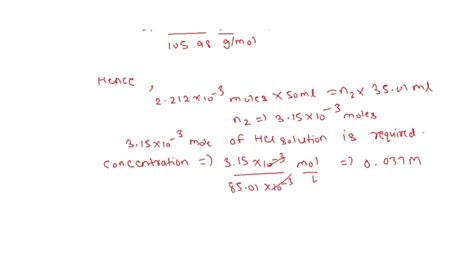 105.98 g/mol
Hence,
2.212×10⁻³ moles × 50ml = n₂ × 35.01 ml
n₂ => 3.15×10⁻³ moles
3.15×10⁻³ mole of HCl solution is required.
concentration => 3.15×10⁻³ mol => 0.037M
85.01×10⁻³ L